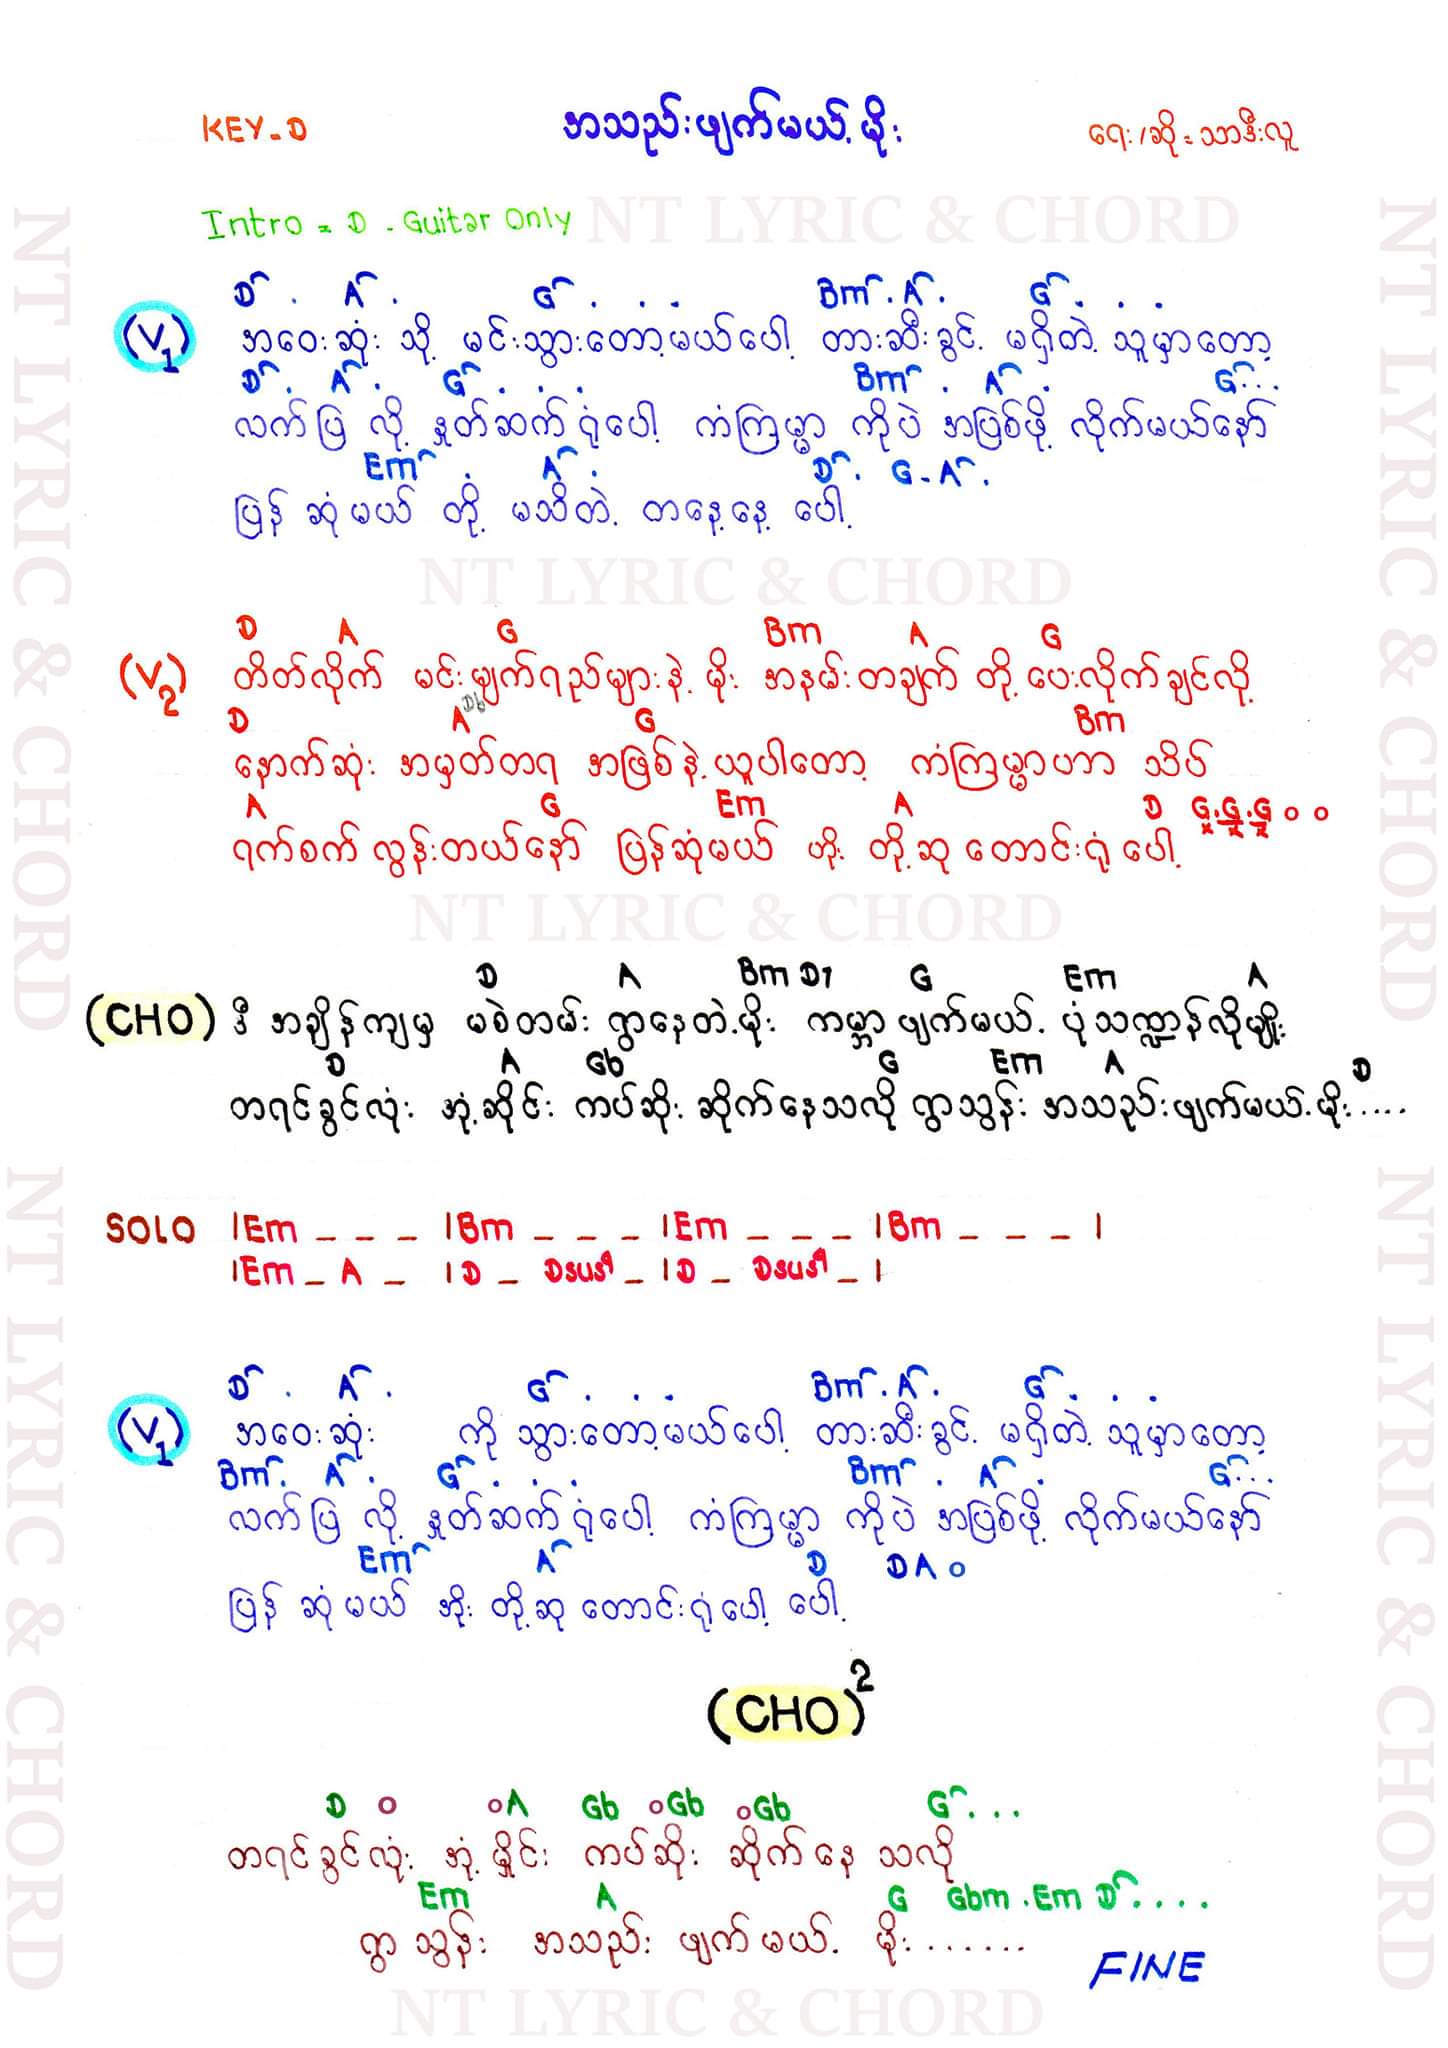 KEY-D
အသည်းဖျက်မယ့်မိုး
ရေး/ဆို = သာဒီးလူ
Intro = D - Guitar Only
NT LYRIC & CHORD
D . A . G . . . Bm . A . G . . .
(V1) အဝေးဆုံး သို့ မင်းသွားတော့မယ်ပေါ့ တားဆီးခွင့် မရှိတဲ့ သူမှာတော့
D . A . G . . . Bm . A . G ...
လက်ပြ လို့ နှုတ်ဆက် ရုံပေါ့ ကံကြမ္မာ ကိုပဲ အပြစ်ဖို့ လိုက်မယ်နော်
Em . A . D . G - A .
ပြန် ဆုံမယ် တို့ မသိတဲ့ တနေ့နေ့ ပေါ့
NT LYRIC & CHORD
D A G Bm A G
(V2) တိတ်လိုက် မင်းမျက်ရည်များနဲ့ မိုး အနမ်းတချက် တို့ ပေးလိုက်ချင်လို့
D Db A G Bm
နောက်ဆုံး အမှတ်တရ အဖြစ်နဲ့ ယူပါတော့ ကံကြမ္မာဟာ သိပ်
A G Em A D G . G . G o o
ရက်စက် လွန်းတယ်နော် ပြန်ဆုံမယ် ဟိုး တို့ဆု တောင်းရုံ ပေါ့
NT LYRIC & CHORD
D A Bm D7 G Em A
(CHO) ဒီ အချိန်ကျမှ မစဲတမ်း ရွာနေတဲ့မိုး ကမ္ဘာ ဖျက်မယ့် ပုံသဏ္ဍာန်လိုမျိုး
D A Gb G Em A D
တရင်ခွင်လုံး အုံ့ဆိုင်း ကပ်ဆိုး ဆိုက်နေသလို ရွာသွန်း အသည်းဖျက်မယ့်မိုး ....
SOLO |Em _ _ _ |Bm _ _ _ |Em _ _ _ |Bm _ _ _ |
|Em _ A _ |D _ Dsus4 _ |D _ Dsus4 _ |
D . A . G . . . Bm . A . G . . .
(V1) အဝေးဆုံး ကို သွားတော့မယ်ပေါ့ တားဆီးခွင့် မရှိတဲ့ သူမှာတော့
Bm . A . G . . . Bm . A . G ...
လက်ပြ လို့ နှုတ်ဆက် ရုံပေါ့ ကံကြမ္မာ ကိုပဲ အပြစ်ဖို့ လိုက်မယ်နော်
Em A D D A o
ပြန် ဆုံမယ် အိုး တို့ဆု တောင်းရုံပေါ့ ပေါ့
(CHO)2
D o o A Gb o Gb o Gb G . . .
တရင်ခွင်လုံး အုံ့မှိုင်း ကပ်ဆိုး ဆိုက်နေ သလို
Em A G Gbm . Em D . . . .
ရွာ သွန်း အသည်း ဖျက်မယ့် မိုး .......
FINE
NT LYRIC & CHORD
NT LYRIC & CHORD
NT LYRIC & CHORD
NT LYRIC & CHORD
NT LYRIC & CHORD